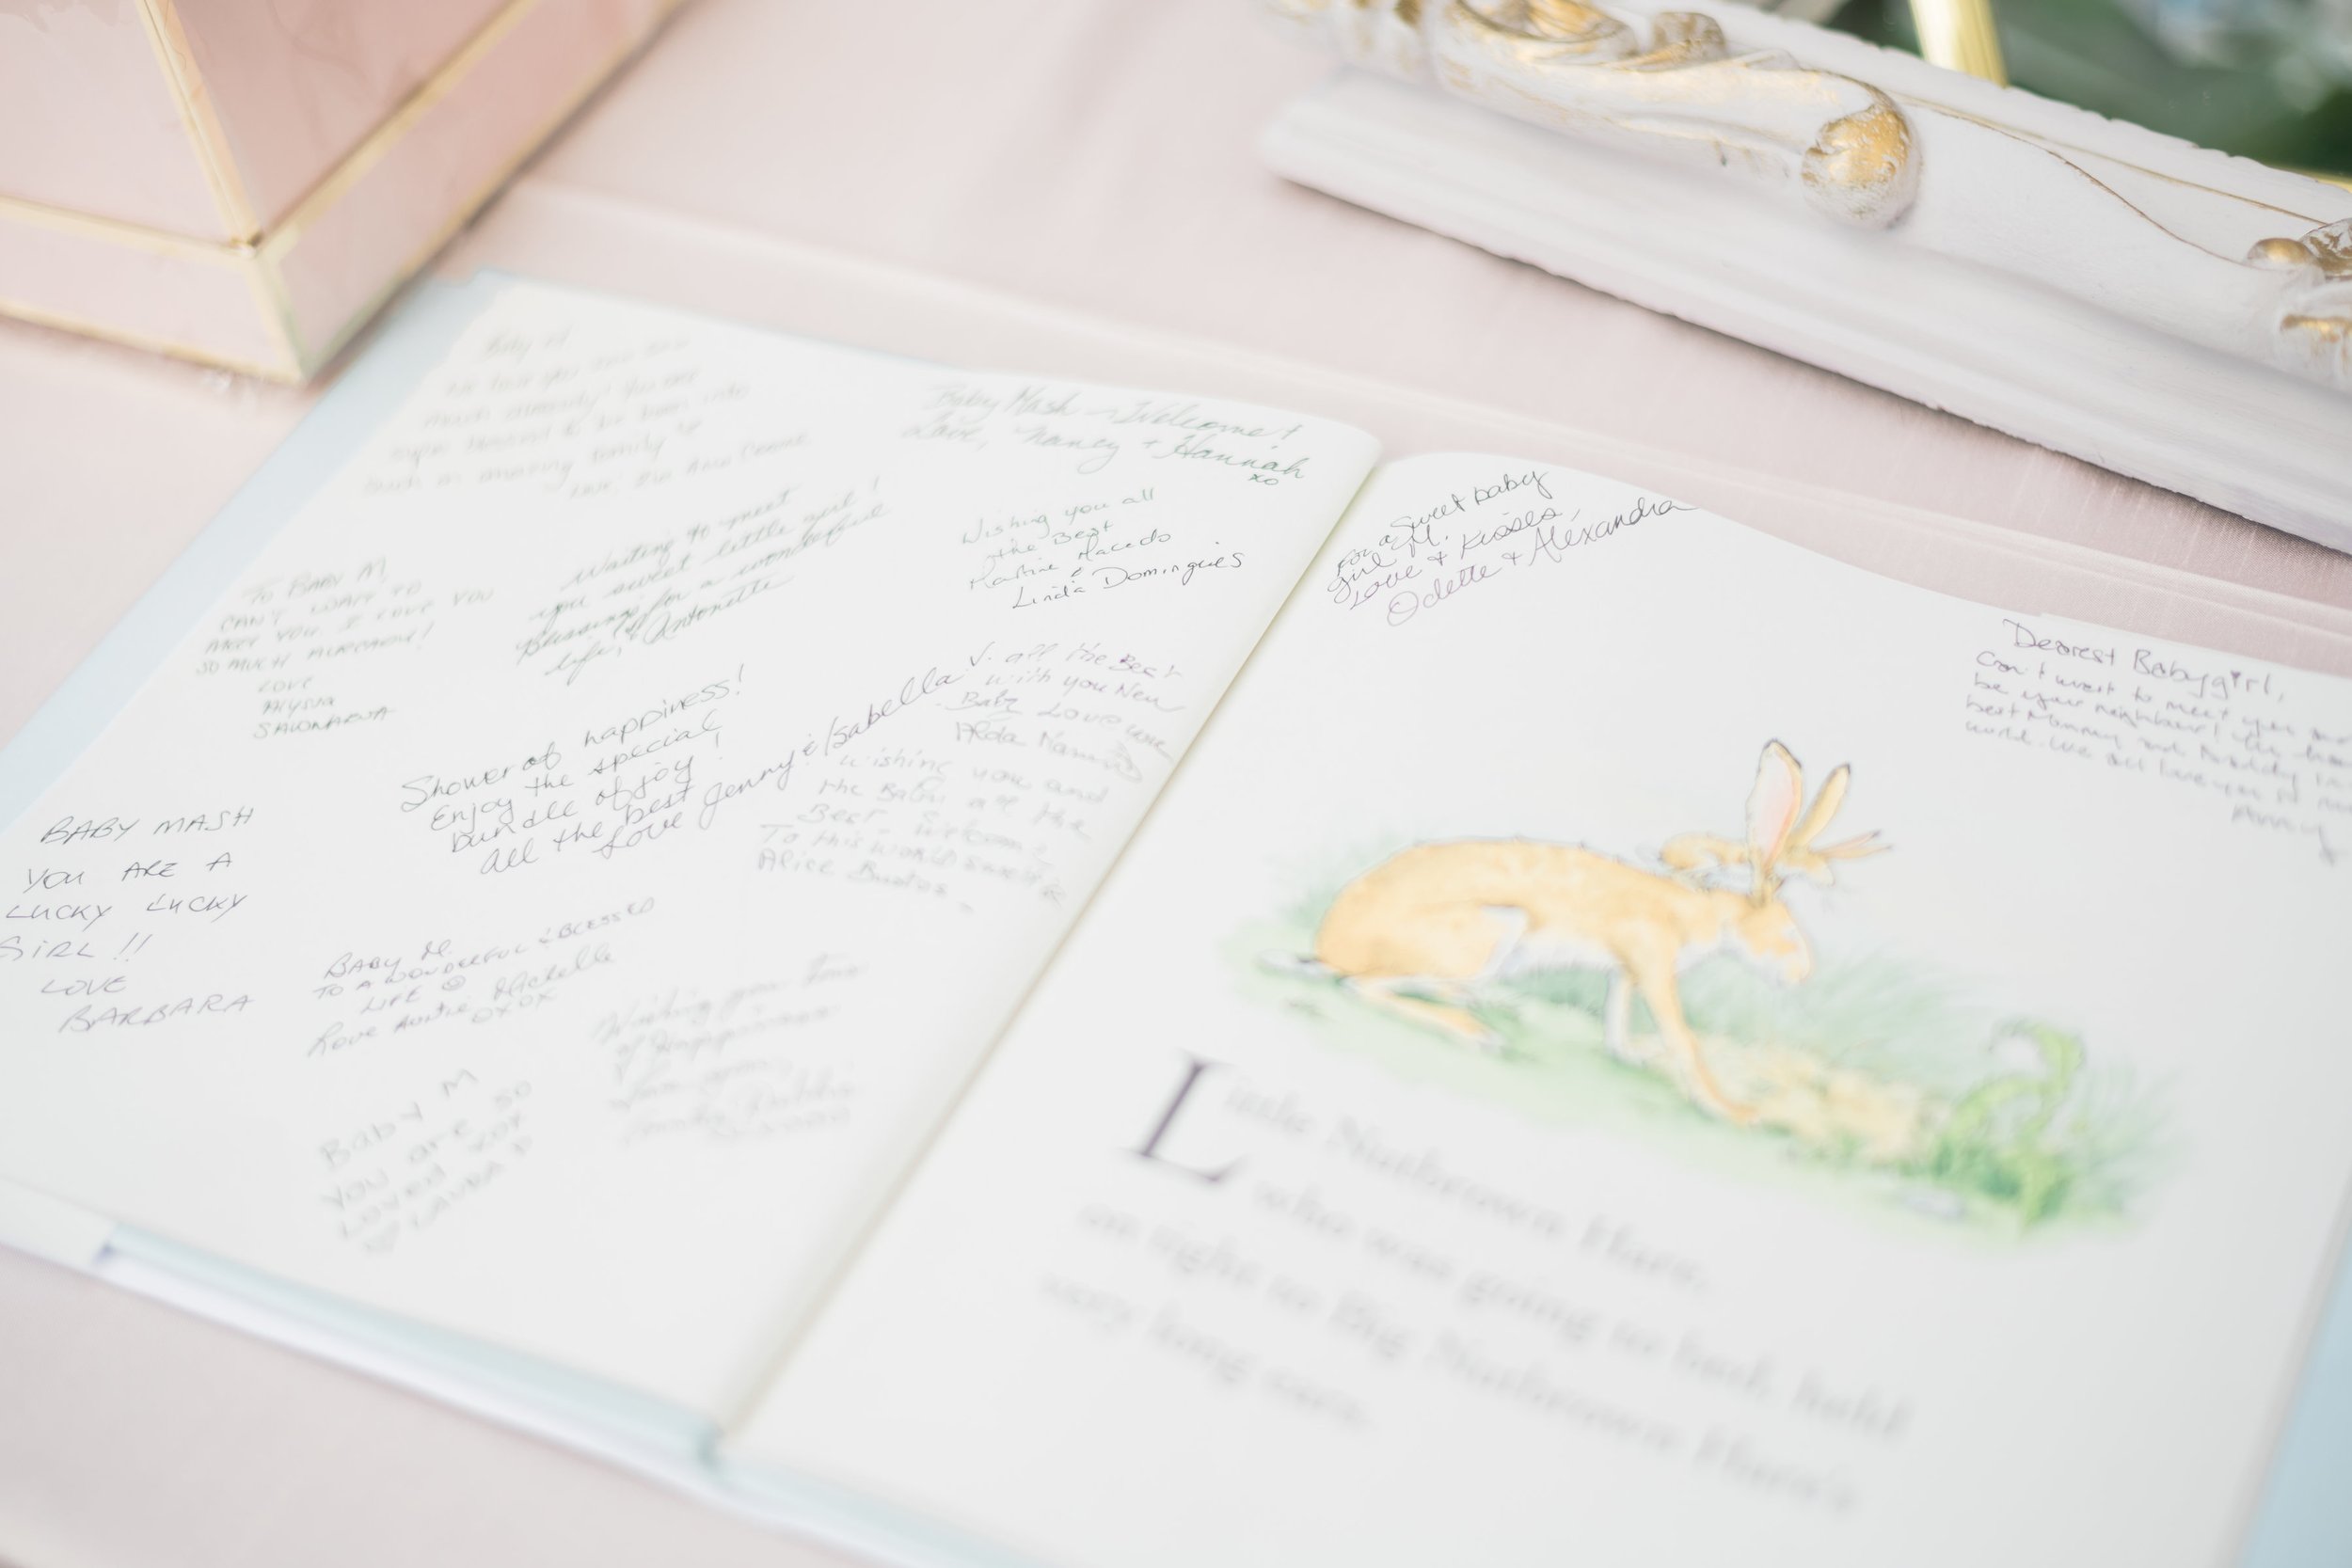 Baby M
much already! You are
such an amazing family
Baby Mash ~ Welcome!
Love, Nancy + Hannah
xo
Waiting to meet
you sweet little girl!
Blessings for a wonderful
life, Antonette
Wishing you all
the Best
Macedo
&
Linda Domingues
TO BABY M
CAN'T WAIT TO
MEET YOU. I LOVE YOU
SO MUCH ALREADY!
LOVE
ALYSSA
Shower of happiness!
Enjoy the special
bundle of joy!
All the best
Love Jenny & Isabella
V. all the Best
with you New
Baby Love
Alda
Wishing you and
the Baby all the
Best. Welcome
To this world sweetie
Alice Bustos
BABY MASH
YOU ARE A
LUCKY LUCKY
GIRL !!
LOVE
BARBARA
BABY M.
TO A WONDERFUL & BLESSED
LIFE ☺
Love Auntie Michelle
OXOX
Wishing you
of Happiness
BABY M
YOU are so
LOVED
♡ LAURA
For a Sweet baby
girl M.
Love + Kisses,
Odette + Alexandra
Dearest Babygirl,
Can't wait to meet you
be your neighbour!
best Mommy and Daddy in
world. We all love you so
Little Nutbrown Hare,
who was going to bed, held
on tight to Big Nutbrown Hare's
very long ears.